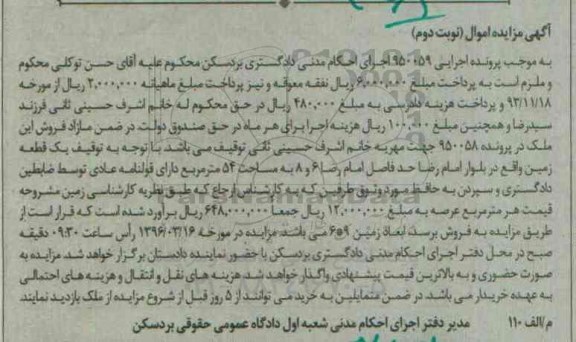 آگهی مزایده اموال (نوبت دوم)
به موجب پرونده اجرایی ۹۵۰۰۵۹ اجرای احکام مدنی دادگستری بردسکن محکوم علیه آقای حسن توکلی محکوم
و ملزم است به پرداخت مبلغ ۶,۰۰۰,۰۰۰ ریال نفقه معوقه و نیز پرداخت مبلغ ماهیانه ۲,۰۰۰,۰۰۰ ریال از مورخه
۹۳/۱۱/۱۸ و پرداخت هزینه دادرسی به مبلغ ۴۸۰,۰۰۰ ریال در حق محکوم له خانم اشرف حسینی ثانی فرزند
سیدرضا و همچنین مبلغ ۱۰۰,۰۰۰ ریال هزینه اجرا برای هر ماه در حق صندوق دولت. در ضمن مازاد فروش این
ملک در پرونده ۹۵۰۰۵۸ جهت مهریه خانم اشرف حسینی ثانی توقیف می باشد. با توجه به توقیف یک قطعه
زمین واقع در بلوار امام رضا حد فاصل امام رضا ۶ و ۸ به مساحت ۵۴ مترمربع دارای قولنامه عادی توسط ضابطین
دادگستری و سپردن به حافظ مورد وثوق طرفین که به کارشناس ارجاع که طبق نظریه کارشناسی زمین مشروحه
قیمت هر مترمربع عرصه به مبلغ ۱۲,۰۰۰,۰۰۰ ریال جمعا ۶۴۸,۰۰۰,۰۰۰ ریال برآورد شده است که قرار است از
طریق مزایده به فروش برسد. ابعاد زمین ۹*۶ می باشد. مزایده در مورخه ۱۳۹۶/۰۳/۱۶ رأس ساعت ۰۹:۳۰ دقیقه
صبح در محل دفتر اجرای احکام مدنی دادگستری بردسکن با حضور نماینده دادستان برگزار خواهد شد. مزایده به
صورت حضوری و به بالاترین قیمت پیشنهادی واگذار خواهد شد. هزینه های نقل و انتقال و هزینه های احتمالی
به عهده خریدار می باشد. در ضمن متمایلین به خرید می توانند از ۵ روز قبل از شروع مزایده از ملک بازدید نمایند.
م/الف ۱۱۰ مدیر دفتر اجرای احکام مدنی شعبه اول دادگاه عمومی حقوقی بردسکن